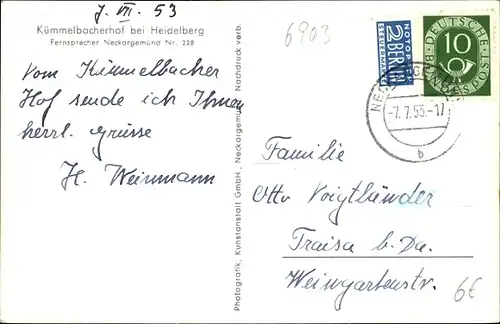 7. VII. 53
Kümmelbacherhof bei Heidelberg
Fernsprecher Neckargemünd Nr. 228
Vom Kümmelbacher
Hof sende ich Ihnen
herrl. Grüsse
H. Weinmann
Photografik, Kunstanstalt GmbH., Neckargemünd. Nachdruck verb.
6903
NOTOPFER
2 BERLIN
STEUERMARKE
DEUTSCHE BUNDESPOST
10
-7.7.53.-17
b
Familie
Otto Voigtländer
Traisa b. Da.
Weingartenstr.
6€